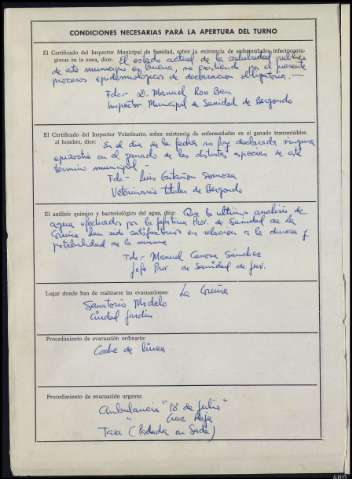 CONDICIONES NECESARIAS PARA LA APERTURA DEL TURNO
El Certificado del Inspector Municipal de Sanidad, sobre la existencia de enfermedades infectocontagiosas en la zona, dice: El estado actual de la salubridad pública
de este municipio es buena, no existiendo por el presente
procesos epidemiológicos de declaración obligatoria.
Fdo- D. Manuel
Inspector Municipal de Sanidad de Bergondo
El Certificado del Inspector Veterinario, sobre existencia de enfermedades en el ganado transmisibles
al hombre, dice: En el día de la fecha no hay declarada ninguna
epizootia en el ganado de las distintas especies de este
término municipal -
Fdo- Luis
Veterinario titular de Bergondo
El análisis químico y bacteriológico del agua, dice: Que la último análisis de
agua efectuados por la Jefatura Prov. de Sanidad de La
Coruña han sido satisfactorios en relación a la dureza y
potabilidad de la misma
Fdo- Manuel Sánchez
Jefe Prov. de Sanidad de
Lugar donde han de realizarse las evacuaciones: La Coruña
Sanatorio Modelo
Ciudad Jardín
Procedimiento de evacuación ordinario:
Coche de línea
Procedimiento de evacuación urgente:
Ambulancia "18 de Julio"
" Cruz Roja
Taxi (Parada en Sada)